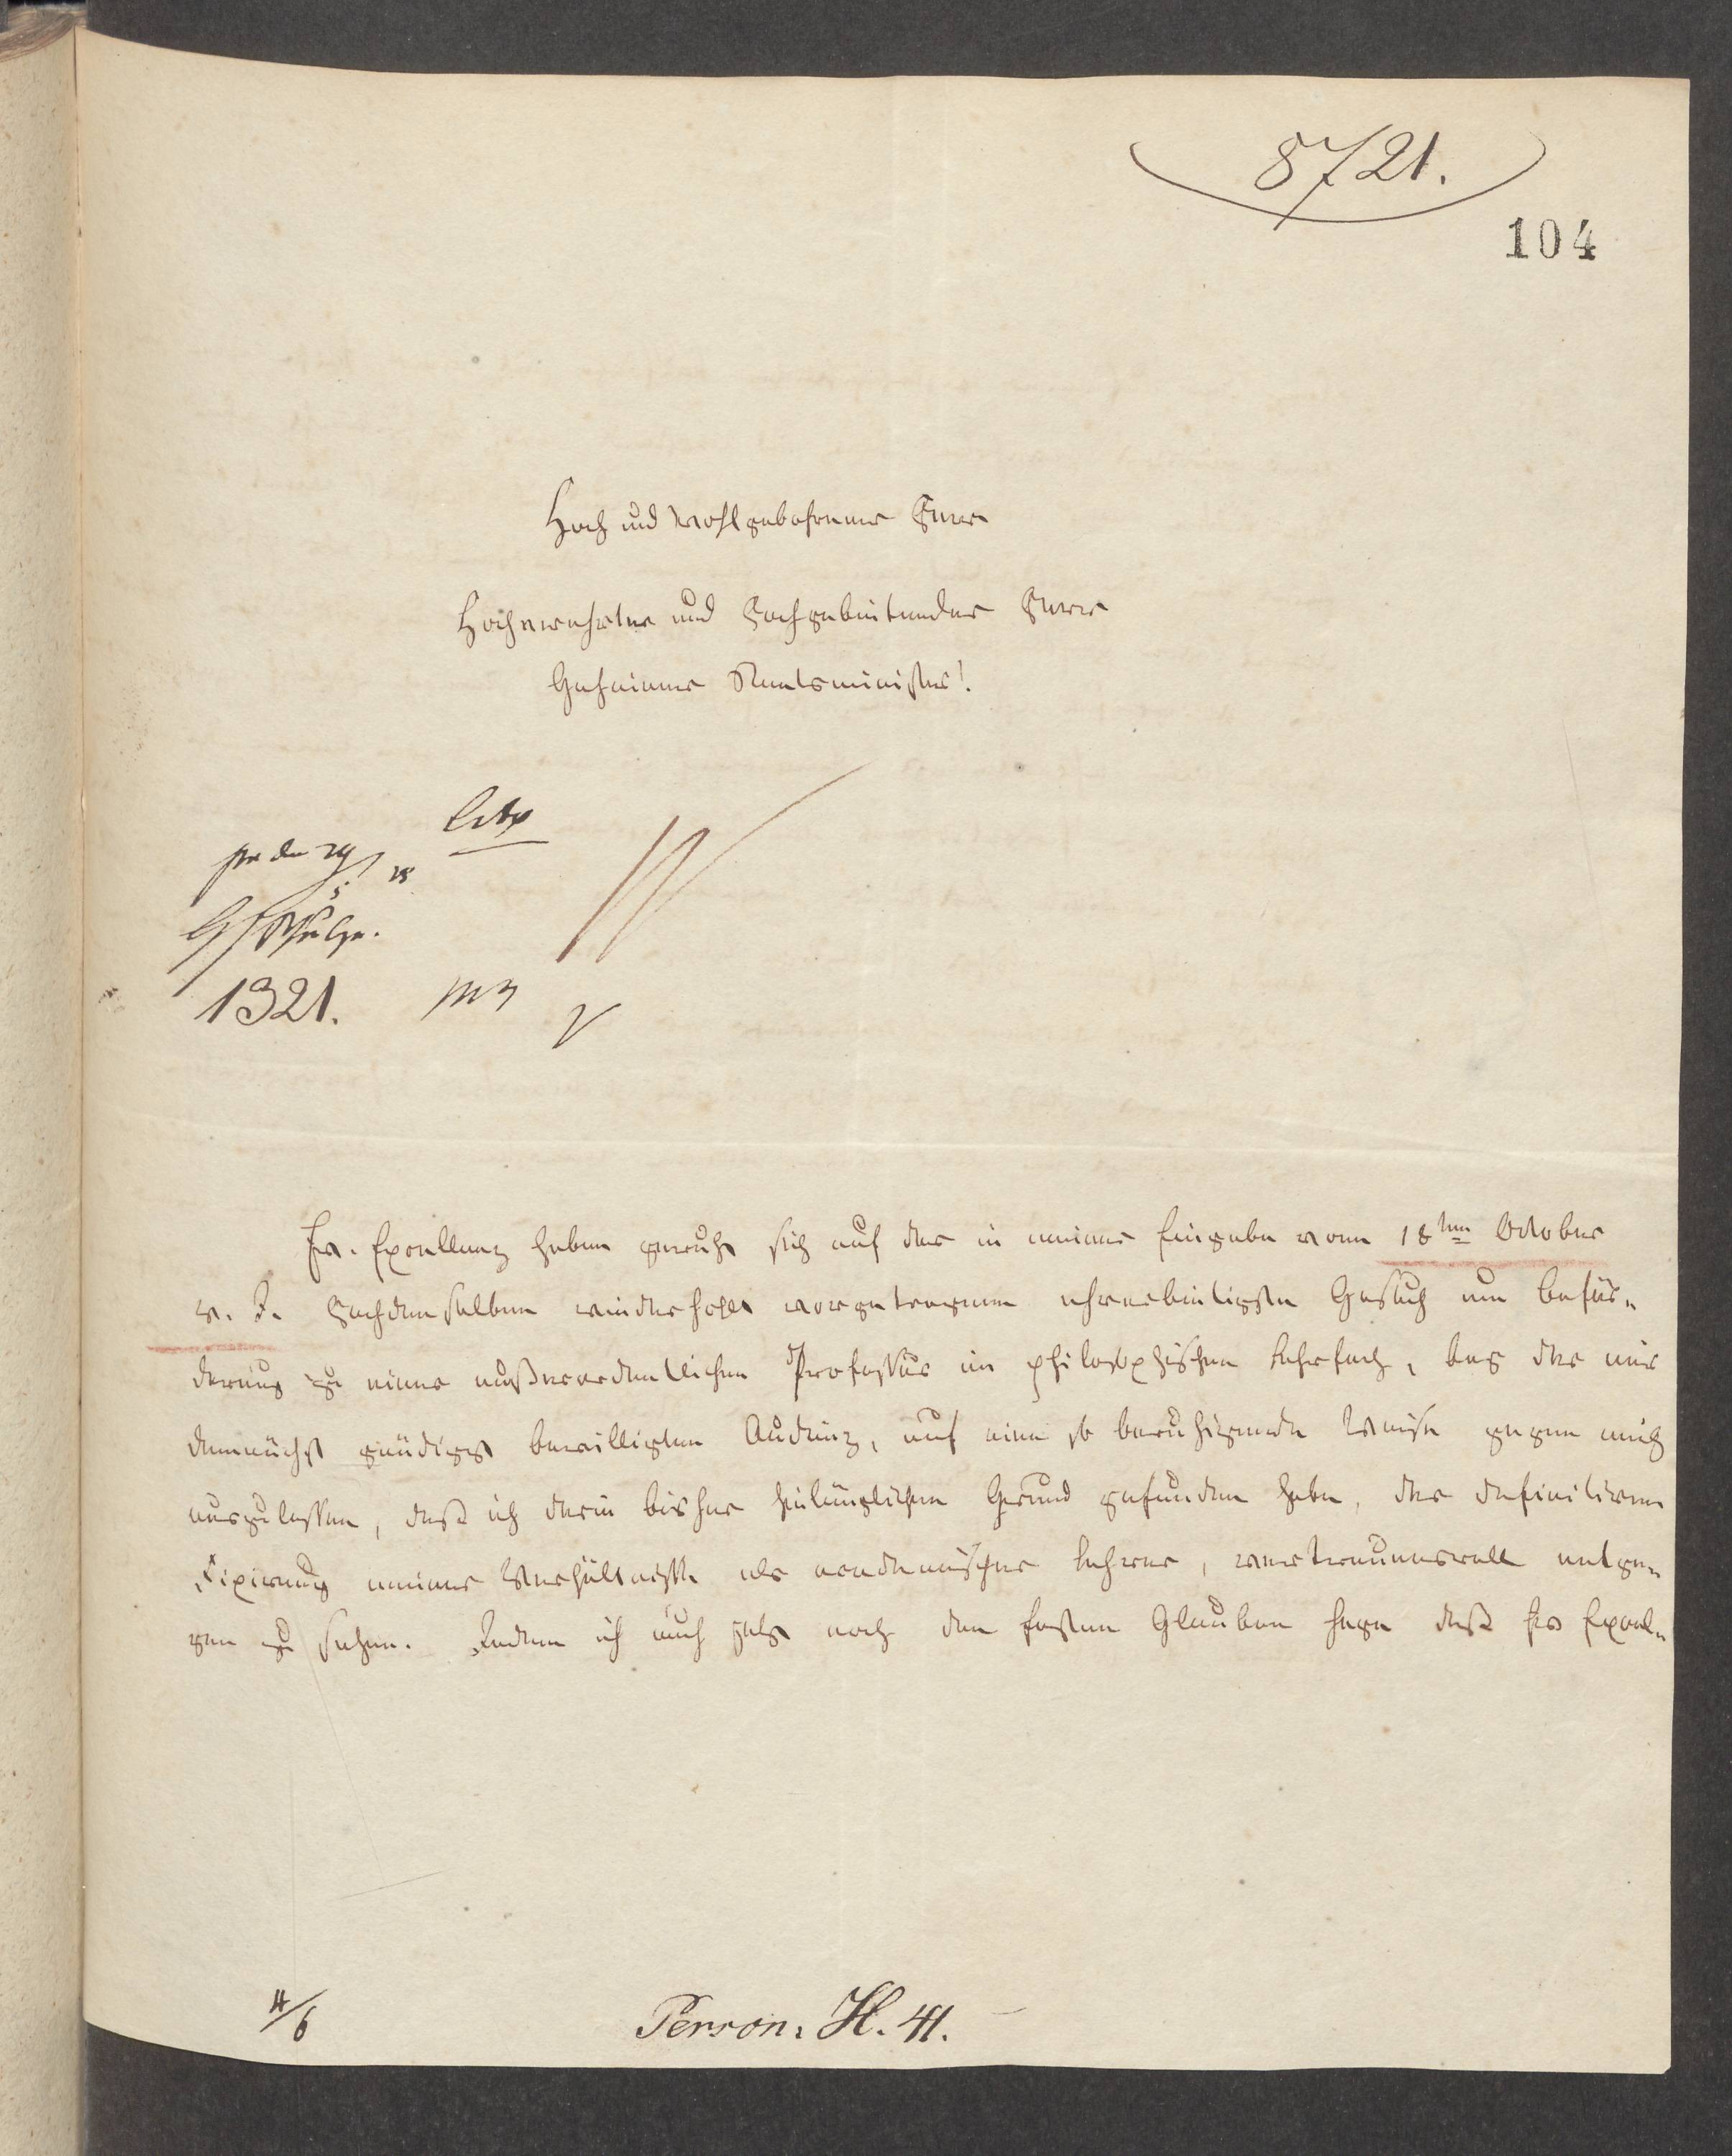 8721.
104
Hoch und Wohlgebohrener Herr
Hochverehrter und Hochgebietender Herr
Geheimer Staatsminister!
G/ Schulze.
1321.
Ew. Excellenz haben geruht sich auf das in meiner Eingabe vom 18ten October
v. J. Hochdenselben wiederholt vorgetragenen ehrerbietigsten Gesuch um Beför-
derung zu einer außerordentlichen Professur im philosophischen Lehrfach, bey der mir
demnächst gnädigst bewilligten Audienz, auf eine so beruhigende Weise gegen mich
auszulassen, daß ich darin bisher hinlänglichen Grund gefunden habe, der definitiven
Fixirung meiner Verhältnisse als academischer Lehrer, vertrauensvoll entge-
gen zu sehen. Indem ich auch jetzt noch den festen Glauben hege daß Ew Excel-
4/6
Person. H. 41.